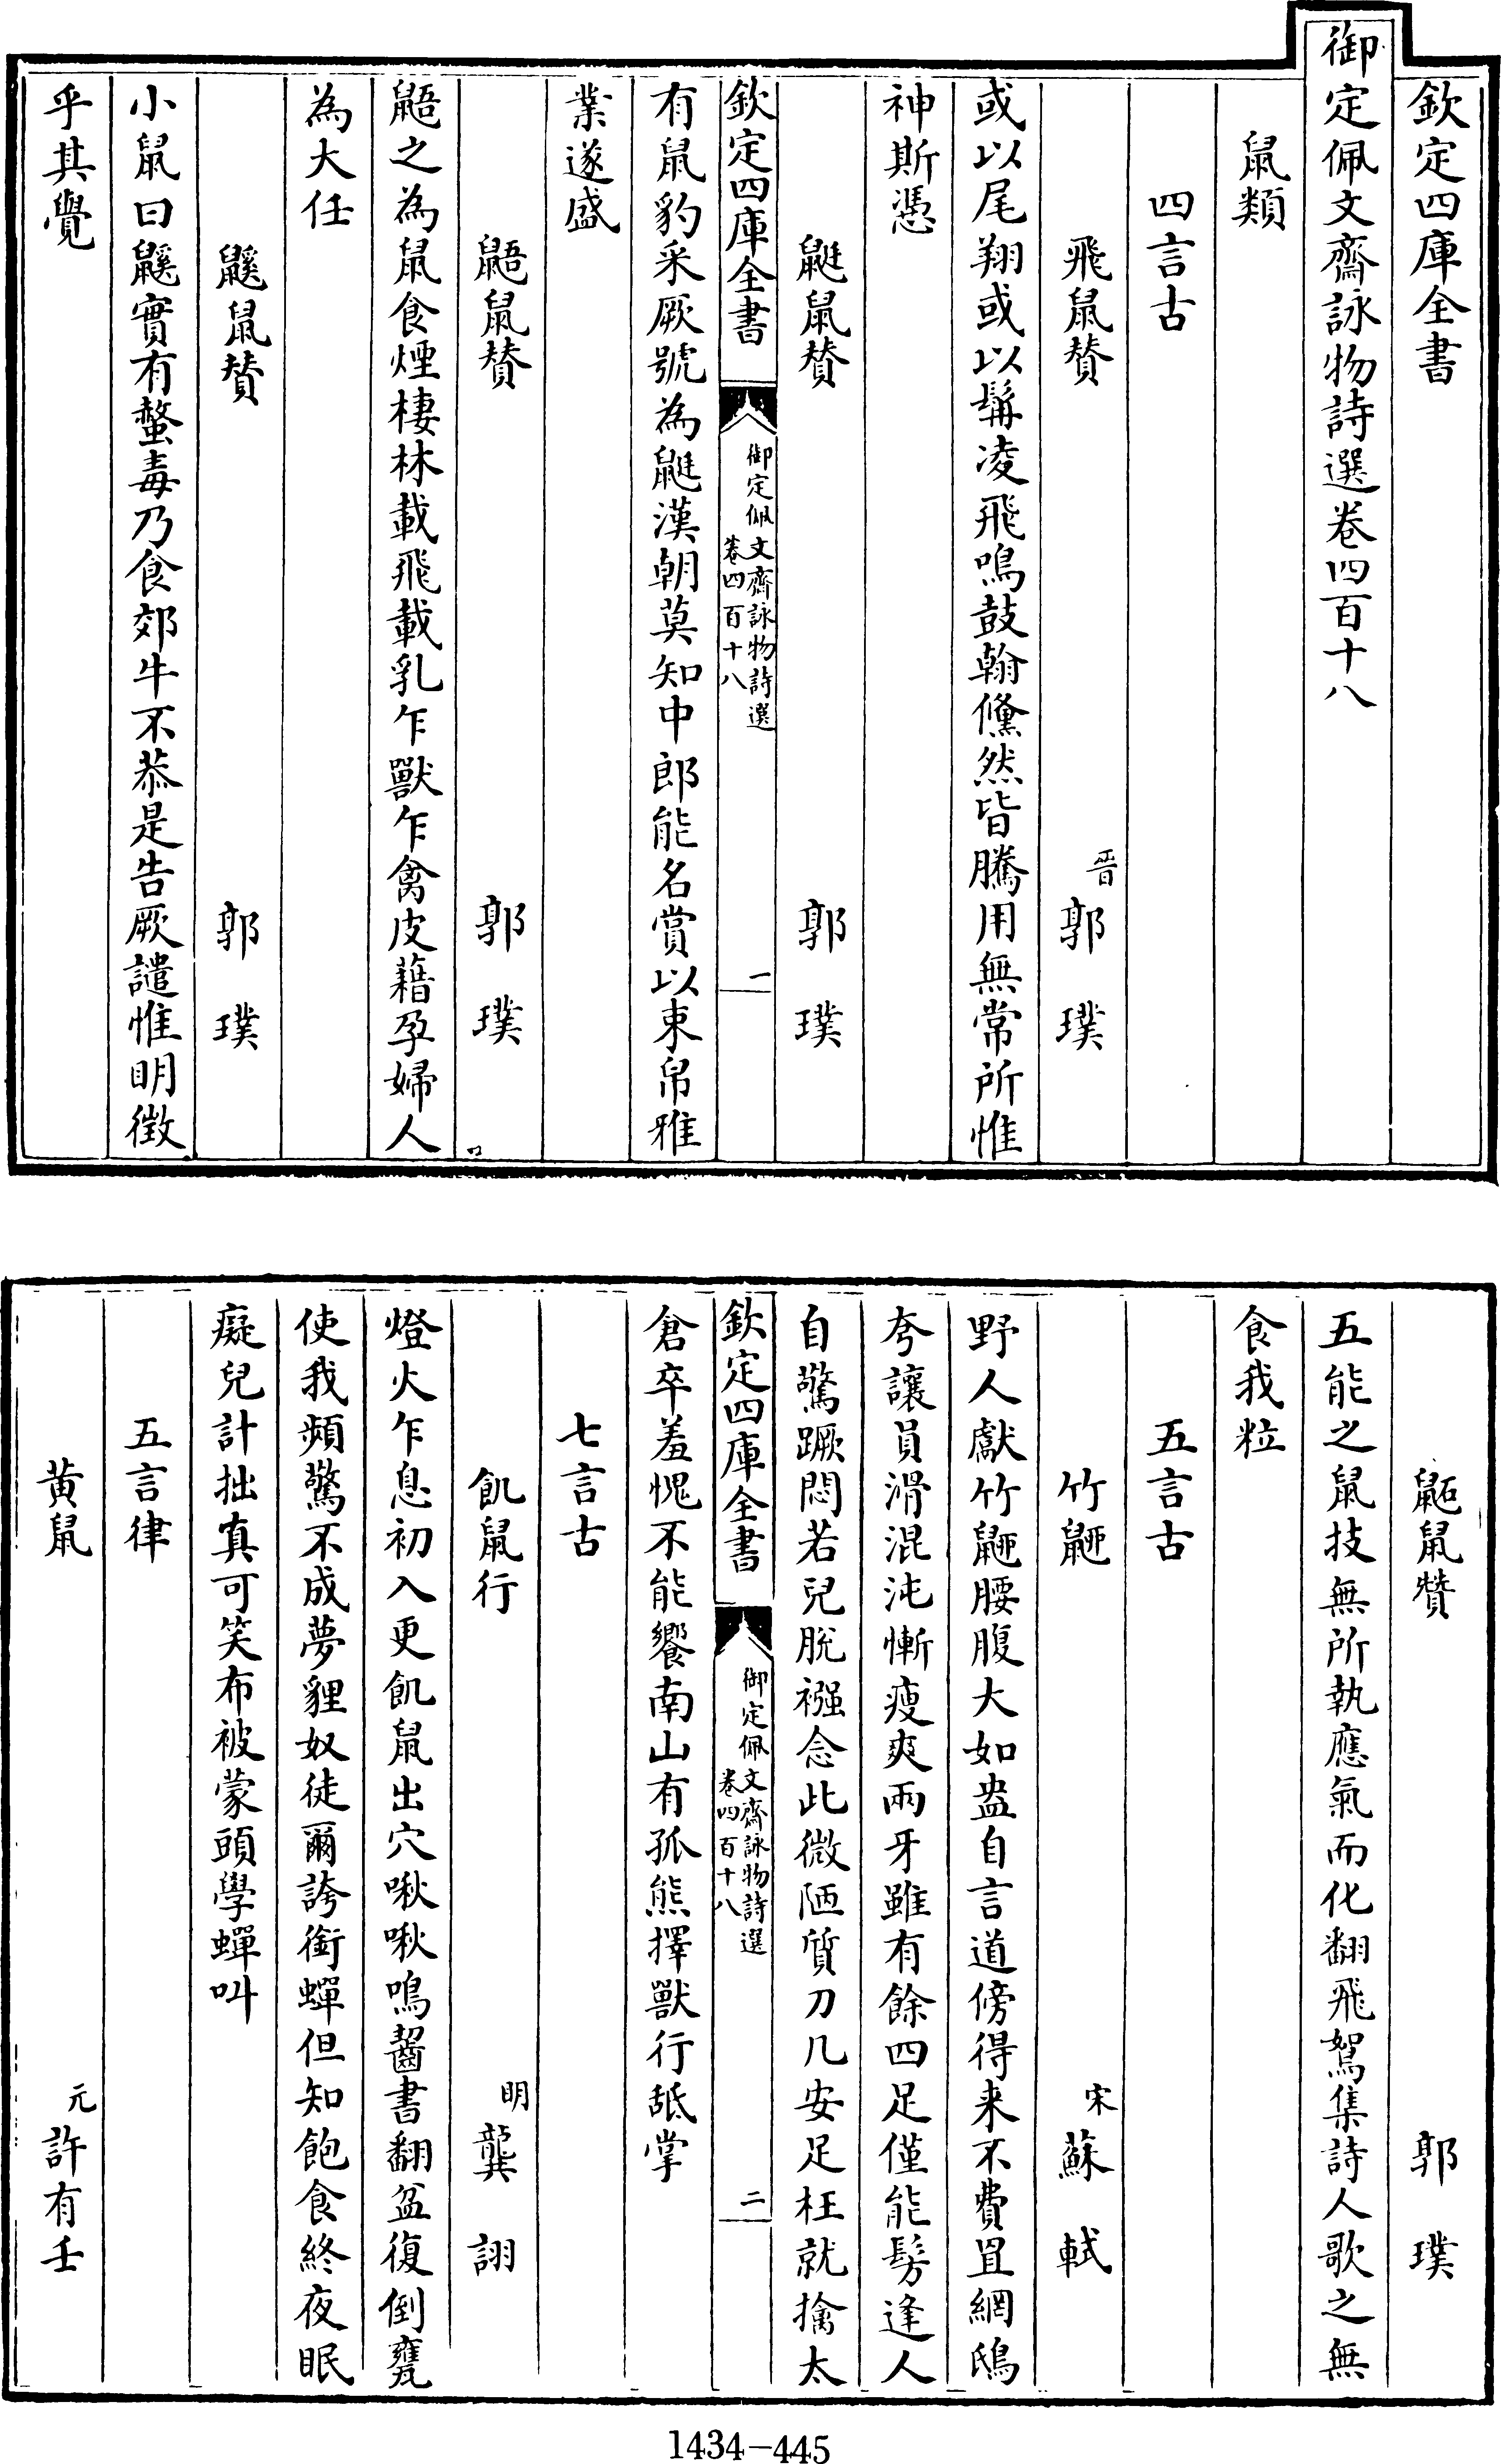 欽定四庫全書
御定佩文齋詠物詩選卷四百十八
鼠類
四言古
飛鼠贊 晉郭璞
或以尾翔或以髯凌飛鳴鼓翰儵然皆騰用無常所惟
神斯憑
鼮鼠贊 郭璞
欽定四庫全書
御定佩文齋詠物詩選
卷四百十八
一
有鼠豹采厥號為鼮漢朝莫知中郎能名賞以束帛雅
業遂盛
鼯鼠贊 郭璞
鼯之為鼠食煙棲林載飛載乳乍獸乍禽皮藉孕婦人
為大任
鼷鼠贊 郭璞
小鼠曰鼷實有螫毒乃食郊牛不恭是告厥譴惟明徴
乎其覺
鼫鼠贊 郭璞
五能之鼠技無所執應氣而化翻飛鴽集詩人歌之無
食我粒
五言古
竹䶉 宋蘇軾
野人獻竹䶉腰腹大如盎自言道傍得来不費罝網鴟
夸讓員滑混沌慚瘦爽兩牙雖有餘四足僅能髣逢人
自驚蹶悶若兒脫襁念此微陋質刀几安足枉就擒太
欽定四庫全書
御定佩文齋詠物詩選
卷四百十八
二
倉卒羞愧不能饗南山有孤熊擇獸行舐掌
七言古
飢鼠行 明龔詡
燈火乍息初入更飢鼠出穴啾啾鳴齧書翻盆復倒甕
使我頻驚不成夢貍奴徒爾誇銜蟬但知飽食終夜眠
癡兒計拙真可笑布被蒙頭學蟬叫
五言律
黄鼠 元許有壬
1434-445